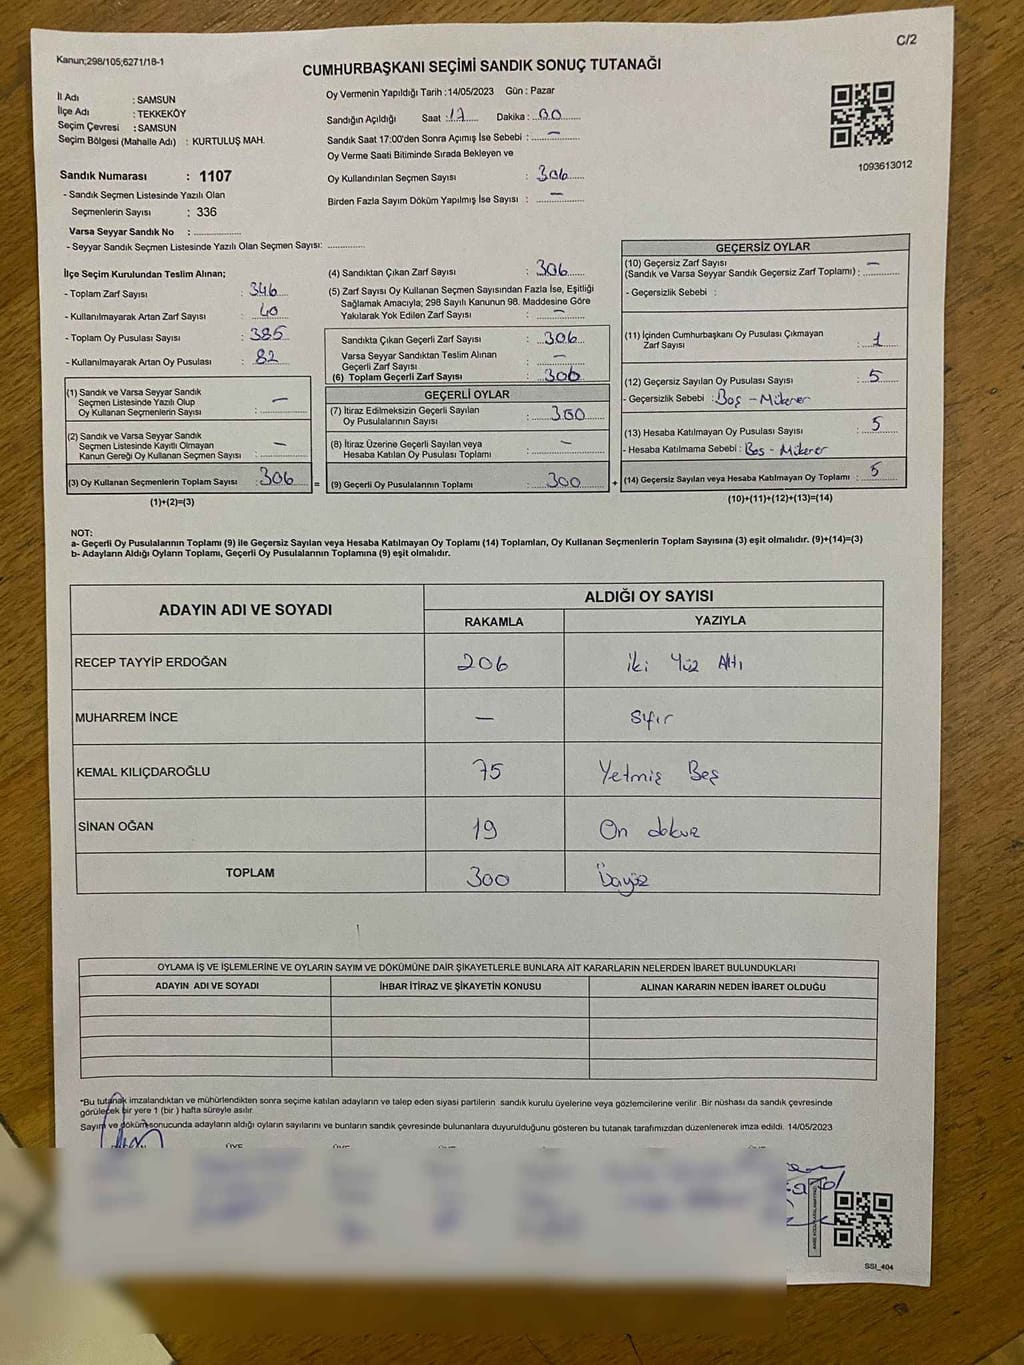 C/2
Kanun;298/105;6271/18-1
CUMHURBAŞKANI SEÇİMİ SANDIK SONUÇ TUTANAĞI
İl Adı : SAMSUN
İlçe Adı : TEKKEKÖY
Seçim Çevresi : SAMSUN
Seçim Bölgesi (Mahalle Adı) : KURTULUŞ MAH.
Sandık Numarası : 1107
- Sandık Seçmen Listesinde Yazılı Olan
Seçmenlerin Sayısı : 336
Varsa Seyyar Sandık No : ............
- Seyyar Sandık Seçmen Listesinde Yazılı Olan Seçmen Sayısı: ............
Oy Vermenin Yapıldığı Tarih :14/05/2023 Gün : Pazar
Sandığın Açıldığı Saat : 17 Dakika : 00
Sandık Saat 17:00'den Sonra Açımış İse Sebebi : —
Oy Verme Saati Bitiminde Sırada Bekleyen ve
Oy Kullandırılan Seçmen Sayısı : 306
Birden Fazla Sayım Döküm Yapılmış İse Sayısı : —
1093613012
İlçe Seçim Kurulundan Teslim Alınan;
- Toplam Zarf Sayısı : 346
- Kullanılmayarak Artan Zarf Sayısı : 40
- Toplam Oy Pusulası Sayısı : 385
- Kullanılmayarak Artan Oy Pusulası : 82
(1) Sandık ve Varsa Seyyar Sandık
Seçmen Listesinde Yazılı Olup
Oy Kullanan Seçmenlerin Sayısı : —
(2) Sandık ve Varsa Seyyar Sandık
Seçmen Listesinde Kayıtlı Olmayan
Kanun Gereği Oy Kullanan Seçmen Sayısı : —
(3) Oy Kullanan Seçmenlerin Toplam Sayısı : 306
(1)+(2)=(3)
(4) Sandıktan Çıkan Zarf Sayısı : 306
(5) Zarf Sayısı Oy Kullanan Seçmen Sayısından Fazla İse, Eşitliği
Sağlamak Amacıyla; 298 Sayılı Kanunun 98. Maddesine Göre
Yakılarak Yok Edilen Zarf Sayısı : —
Sandıkta Çıkan Geçerli Zarf Sayısı : 306
Varsa Seyyar Sandıktan Teslim Alınan
Geçerli Zarf Sayısı : —
(6) Toplam Geçerli Zarf Sayısı : 306
GEÇERLİ OYLAR
(7) İtiraz Edilmeksizin Geçerli Sayılan
Oy Pusulalarının Sayısı : 300
(8) İtiraz Üzerine Geçerli Sayılan veya
Hesaba Katılan Oy Pusulası Toplamı : —
= (9) Geçerli Oy Pusulalarının Toplamı : 300 +
GEÇERSİZ OYLAR
(10) Geçersiz Zarf Sayısı
(Sandık ve Varsa Seyyar Sandık Geçersiz Zarf Toplamı) : —
- Geçersizlik Sebebi :
(11) İçinden Cumhurbaşkanı Oy Pusulası Çıkmayan
Zarf Sayısı : 1
(12) Geçersiz Sayılan Oy Pusulası Sayısı : 5
- Geçersizlik Sebebi : Boş - Mükerer
(13) Hesaba Katılmayan Oy Pusulası Sayısı : 5
- Hesaba Katılmama Sebebi : Boş - Mükerer
(14) Geçersiz Sayılan veya Hesaba Katılmayan Oy Toplamı : 5
(10)+(11)+(12)+(13)=(14)
NOT:
a- Geçerli Oy Pusulalarının Toplamı (9) ile Geçersiz Sayılan veya Hesaba Katılmayan Oy Toplamı (14) Toplamları, Oy Kullanan Seçmenlerin Toplam Sayısına (3) eşit olmalıdır. (9)+(14)=(3)
b- Adayların Aldığı Oyların Toplamı, Geçerli Oy Pusulalarının Toplamına (9) eşit olmalıdır.
ADAYIN ADI VE SOYADI ALDIĞI OY SAYISI
RAKAMLA YAZIYLA
RECEP TAYYİP ERDOĞAN 206 İki Yüz Altı
MUHARREM İNCE — Sıfır
KEMAL KILIÇDAROĞLU 75 Yetmiş Beş
SİNAN OĞAN 19 On dokuz
TOPLAM 300 Üçyüz
OYLAMA İŞ VE İŞLEMLERİNE VE OYLARIN SAYIM VE DÖKÜMÜNE DAİR ŞİKAYETLERLE BUNLARA AİT KARARLARIN NELERDEN İBARET BULUNDUKLARI
ADAYIN ADI VE SOYADI İHBAR İTİRAZ VE ŞİKAYETİN KONUSU ALINAN KARARIN NEDEN İBARET OLDUĞU
*Bu tutanak imzalandıktan ve mühürlendikten sonra seçime katılan adayların ve talep eden siyasi partilerin sandık kurulu üyelerine veya gözlemcilerine verilir. Bir nüshası da sandık çevresinde
görülecek bir yere 1 (bir ) hafta süreyle asılır.
Sayım ve döküm sonucunda adayların aldığı oyların sayılarını ve bunların sandık çevresinde bulunanlara duyurulduğunu gösteren bu tutanak tarafımızdan düzenlenerek imza edildi. 14/05/2023
SSI_404